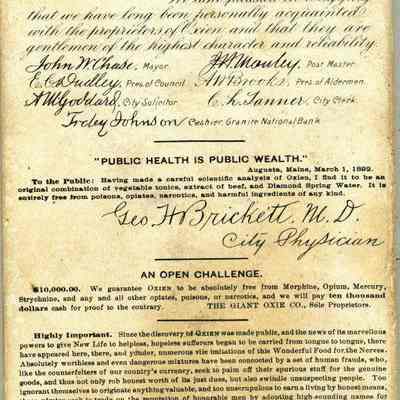 that we have long been personally acquainted
with the proprietors of Oxien and that they are
gentlemen of the highest character and reliability.
John W. Chase, Mayor. Post Master.
E. C. Dudley, Pres of Council. A. W. Brooks, Pres of Aldermen.
A. M. Goddard, City Solicitor. C. H. Tanner, City Clerk.
Treby Johnson Cashier Granite National Bank
"PUBLIC HEALTH IS PUBLIC WEALTH."
Augusta, Maine, March 1, 1892.
To the Public: Having made a careful scientific analysis of Oxien, I find it to be an
original combination of vegetable tonics, extract of beef, and Diamond Spring Water. It is
entirely free from poisons, opiates, narcotics, and harmful ingredients of any kind.
Geo. H. Brickett, M. D.
City Physician
AN OPEN CHALLENGE.
$10,000.00. We guarantee OXIEN to be absolutely free from Morphine, Opium, Mercury,
Strychnine, and any and all other opiates, poisons, or narcotics, and we will pay ten thousand
dollars cash for proof to the contrary. THE GIANT OXIE CO., Sole Proprietors.
Highly Important. Since the discovery of OXIEN was made public, and the news of its marvellous
powers to give New Life to helpless, hopeless sufferers began to be carried from tongue to tongue, there
have appeared here, there, and yonder, numerous vile imitations of this Wonderful Food for the Nerves.
Absolutely worthless and even dangerous mixtures have been concocted by a set of human frauds, who,
like the counterfeiters of our country's currency, seek to palm off their spurious stuff for the genuine
goods, and thus not only rob honest worth of its just dues, but also swindle unsuspecting people. Too
ignorant themselves to originate anything valuable, and too unscrupulous to earn a living by honest means,
to trade on the reputation of honorable men by adopting high-sounding names for